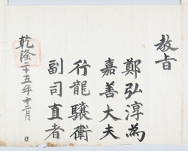 教旨
鄭弘淳為
嘉善大夫
行龍驤衛
副司直者
乾隆二十五年十二月 日